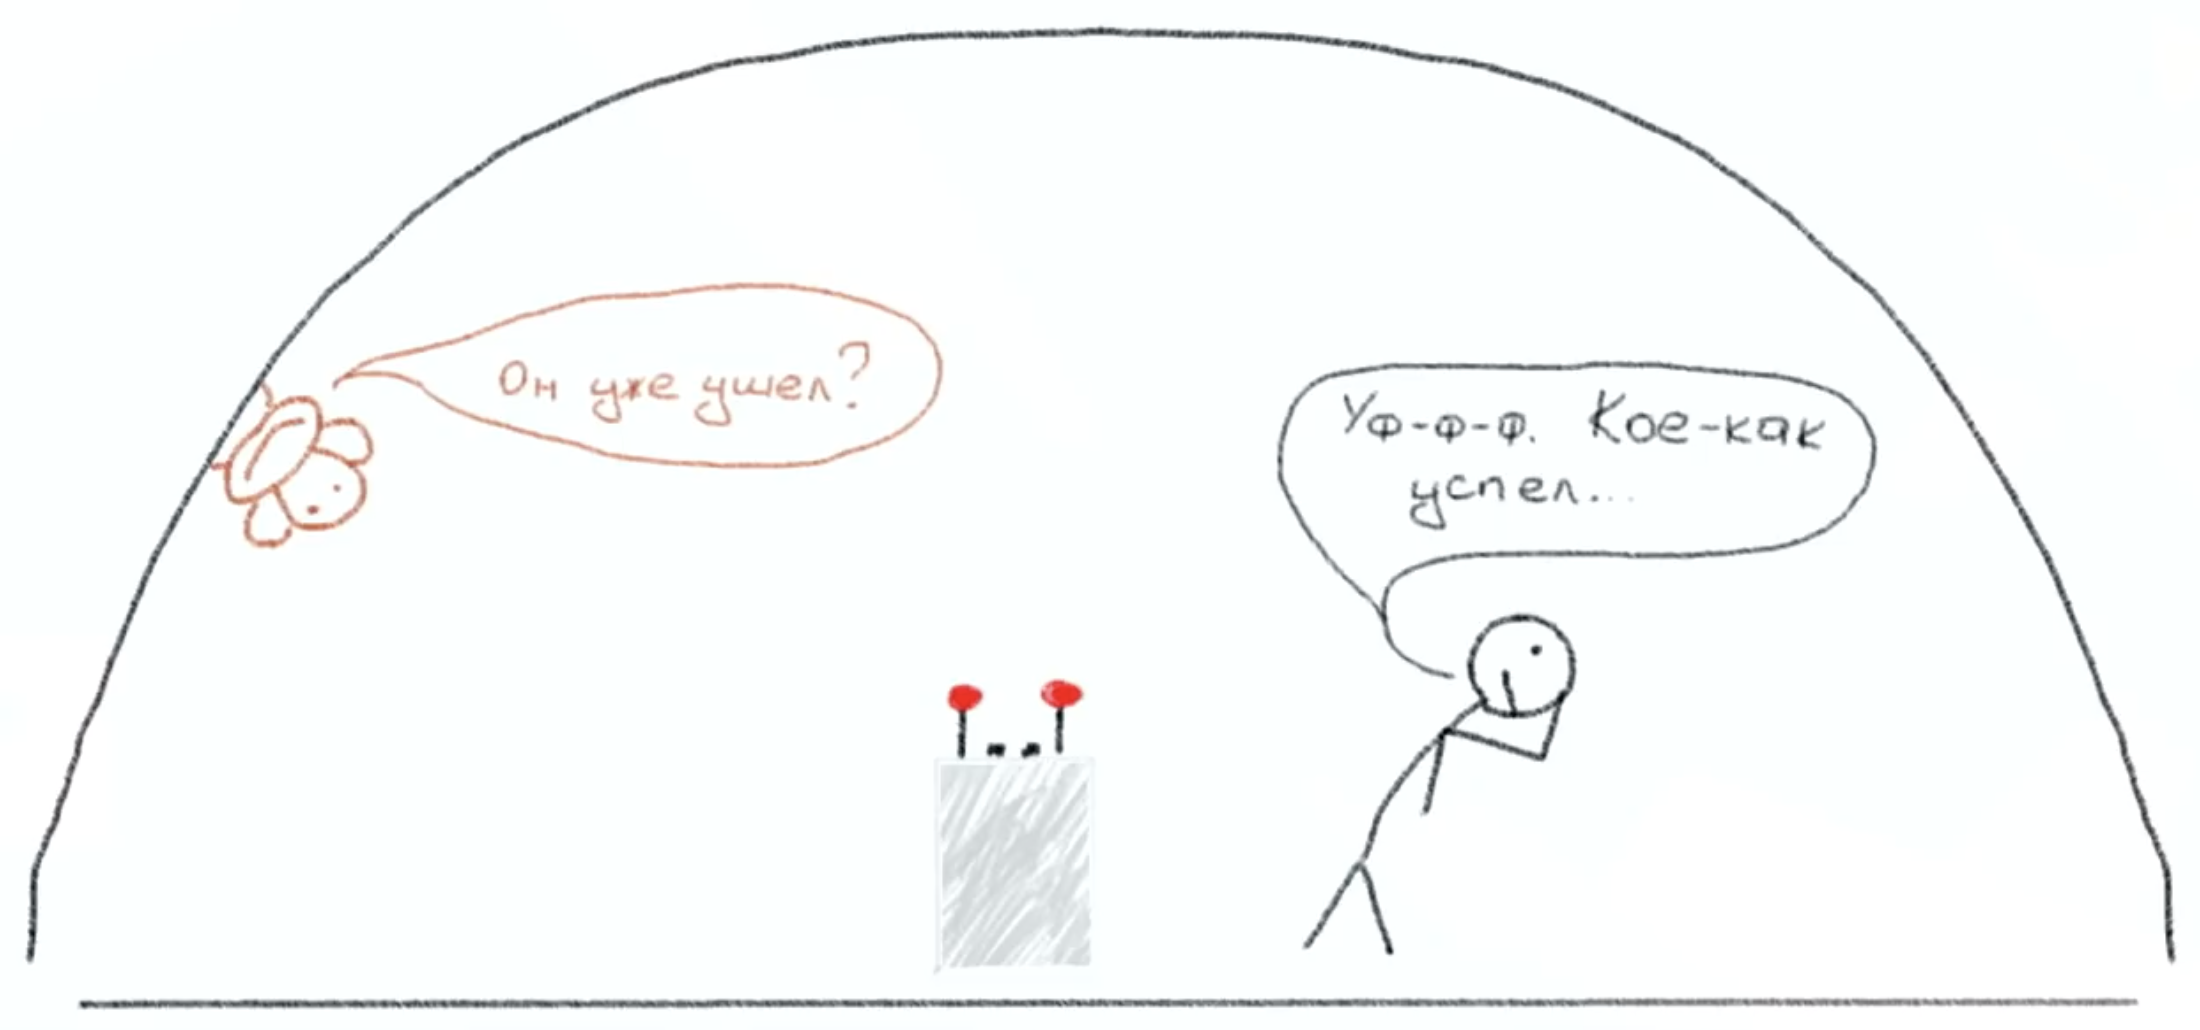 Он уже ушел?
Уф-ф-ф. Кое-как
успел...